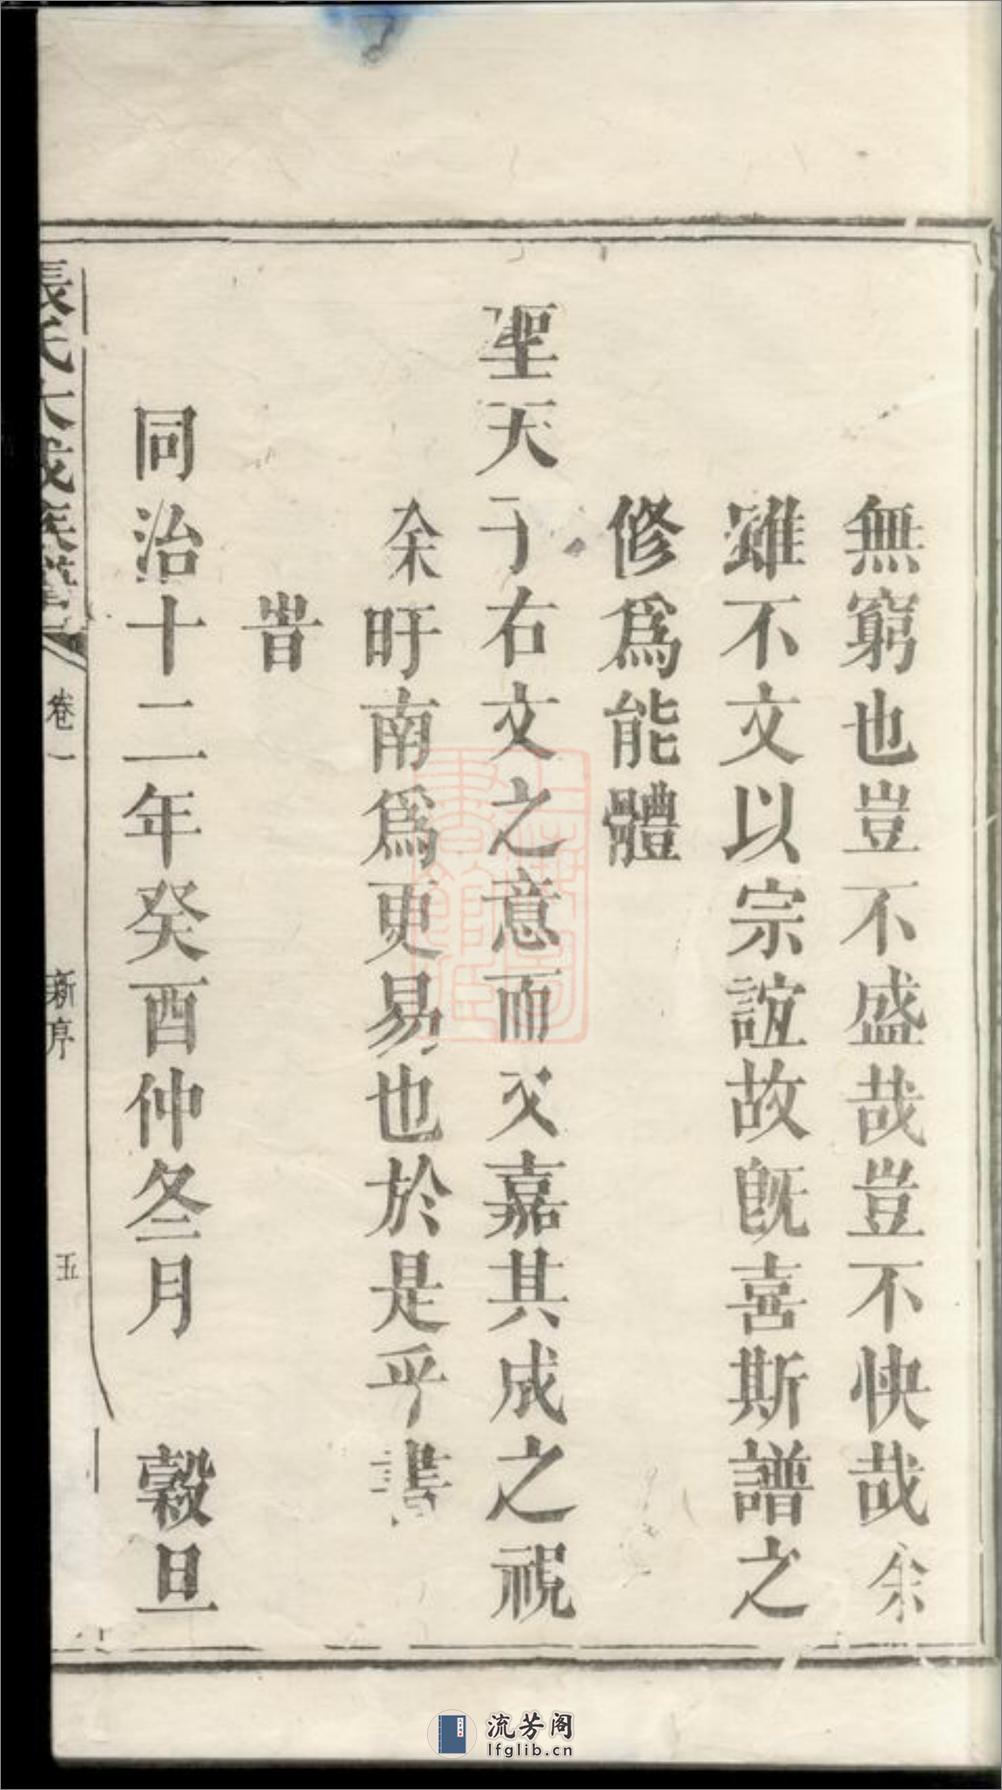 無窮也豈不盛哉豈不快哉余
雖不文以宗誼故旣喜斯譜之
修爲能體
聖天子右文之意而又嘉其成之視
余盱南爲更易也於是乎書
旹
同治十二年癸酉仲冬月　穀旦
張氏大成族譜
卷一
新序
五
流芳阁
lfglib.cn